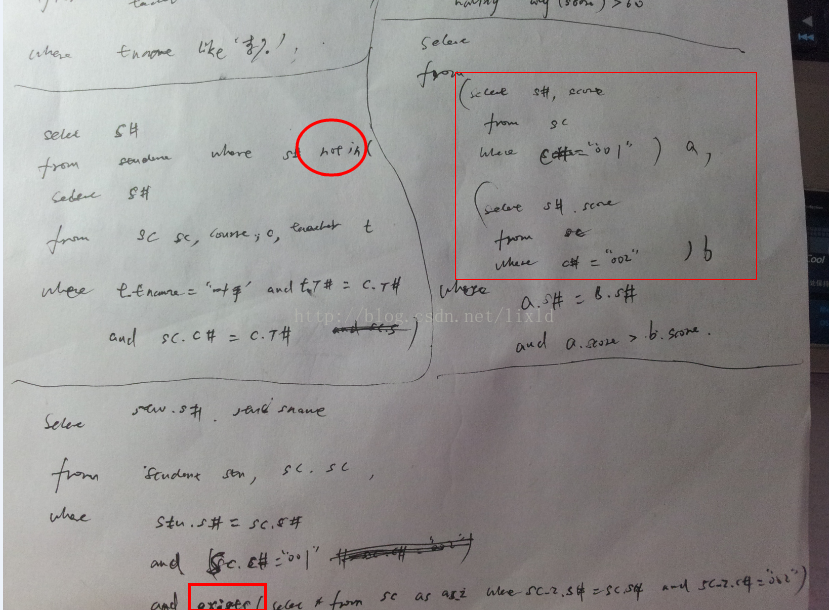 where tname like '李%';
select S#
from student where s# not in (
select S#
from SC sc, course c, teacher t
where t.tname = and t.T# = C.T#
and SC.C# = C.T# )
having avg(score) > 60
select
from
(select s#, score
from sc
where c# = "001" ) a,
(select s#.score
from sc
where c# = "002" ) b
where
a.s# = B.s#
and a.score > b.score.
http://blog.csdn.net/lixld
Select stu.s#. sname
from student stu, sc. sc,
where
stu.s# = sc.s#
and sc.c# = "001"
and exists ( select * from sc as where sc_2.s# = sc.s# and sc_2.c# = "002")